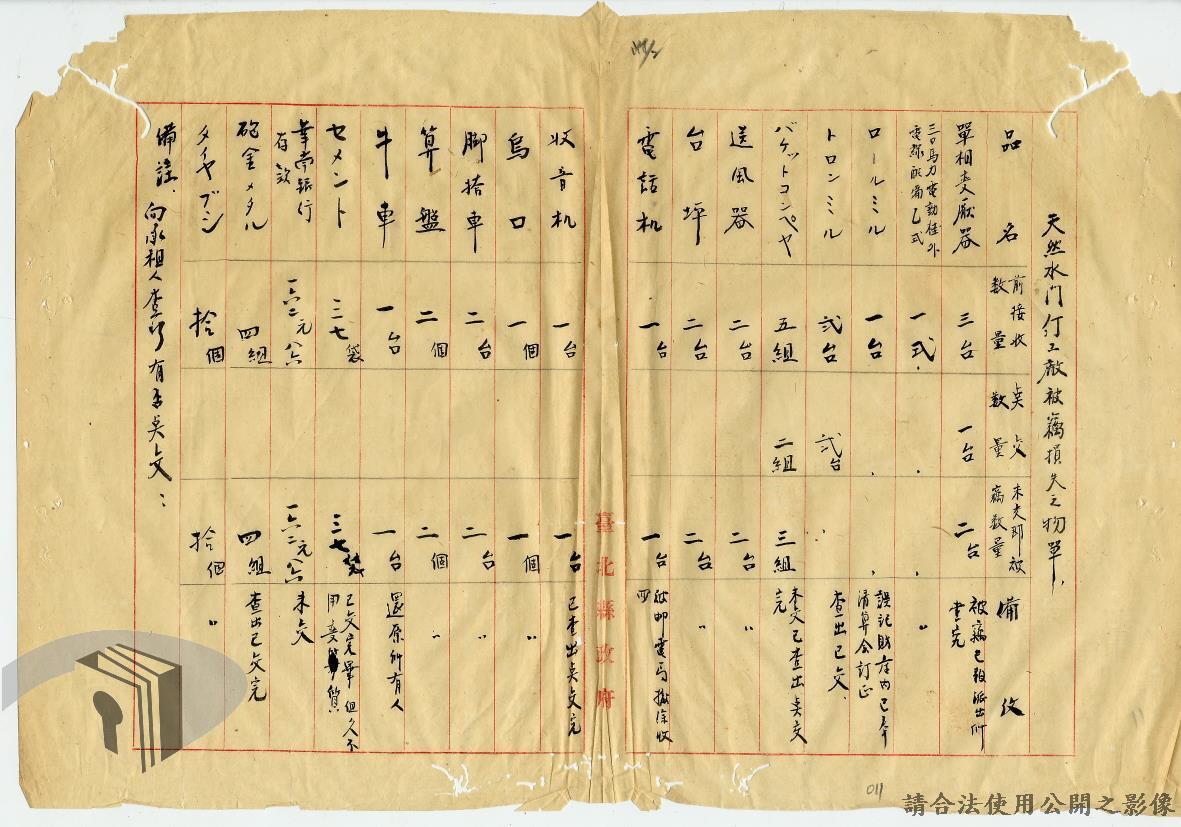 天然水門仃工廠被竊損失之物單,
品名 前接收數量 點交數量 未交即被竊數量 備攷
單相變壓器 三台 一台 二台 被竊已報派出所查究
三〇馬力電動柱外電線配備乙式 一式 〃
ロールミル 一台 誤記財產內已本清算合訂正
トロンミル 弍台 弍台 查出已交
バケットコンベヤ 五組 二組 三組 未交已查出點交完
送風器 二台 二台
台坪 二台 二台 〃
電話机 一台 一台
臺北縣政府
收音机 一台 一台 已查出點交完
烏口 一個 一個 〃
腳搭車 二台 二台 〃
算盤 二個 二個 〃
牛車 一台 一台 還原所有人
セメント 三七袋 三七袋 已交完畢但久不用變質
華南銀行存款 未交
砲金メタル 四組 四組 查出已交完
タイヤブシ 拾個 拾個 〃
備註、向承租人查詢有否點交:
011
請合法使用公開之影像